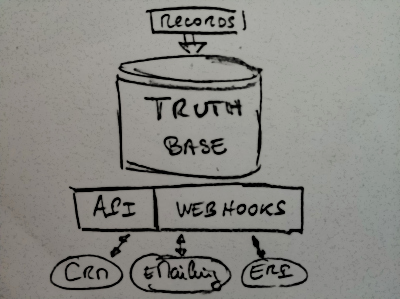 RECORDS
TRUTH
BASE
API WEBHOOKS
CRM EMailing ERP